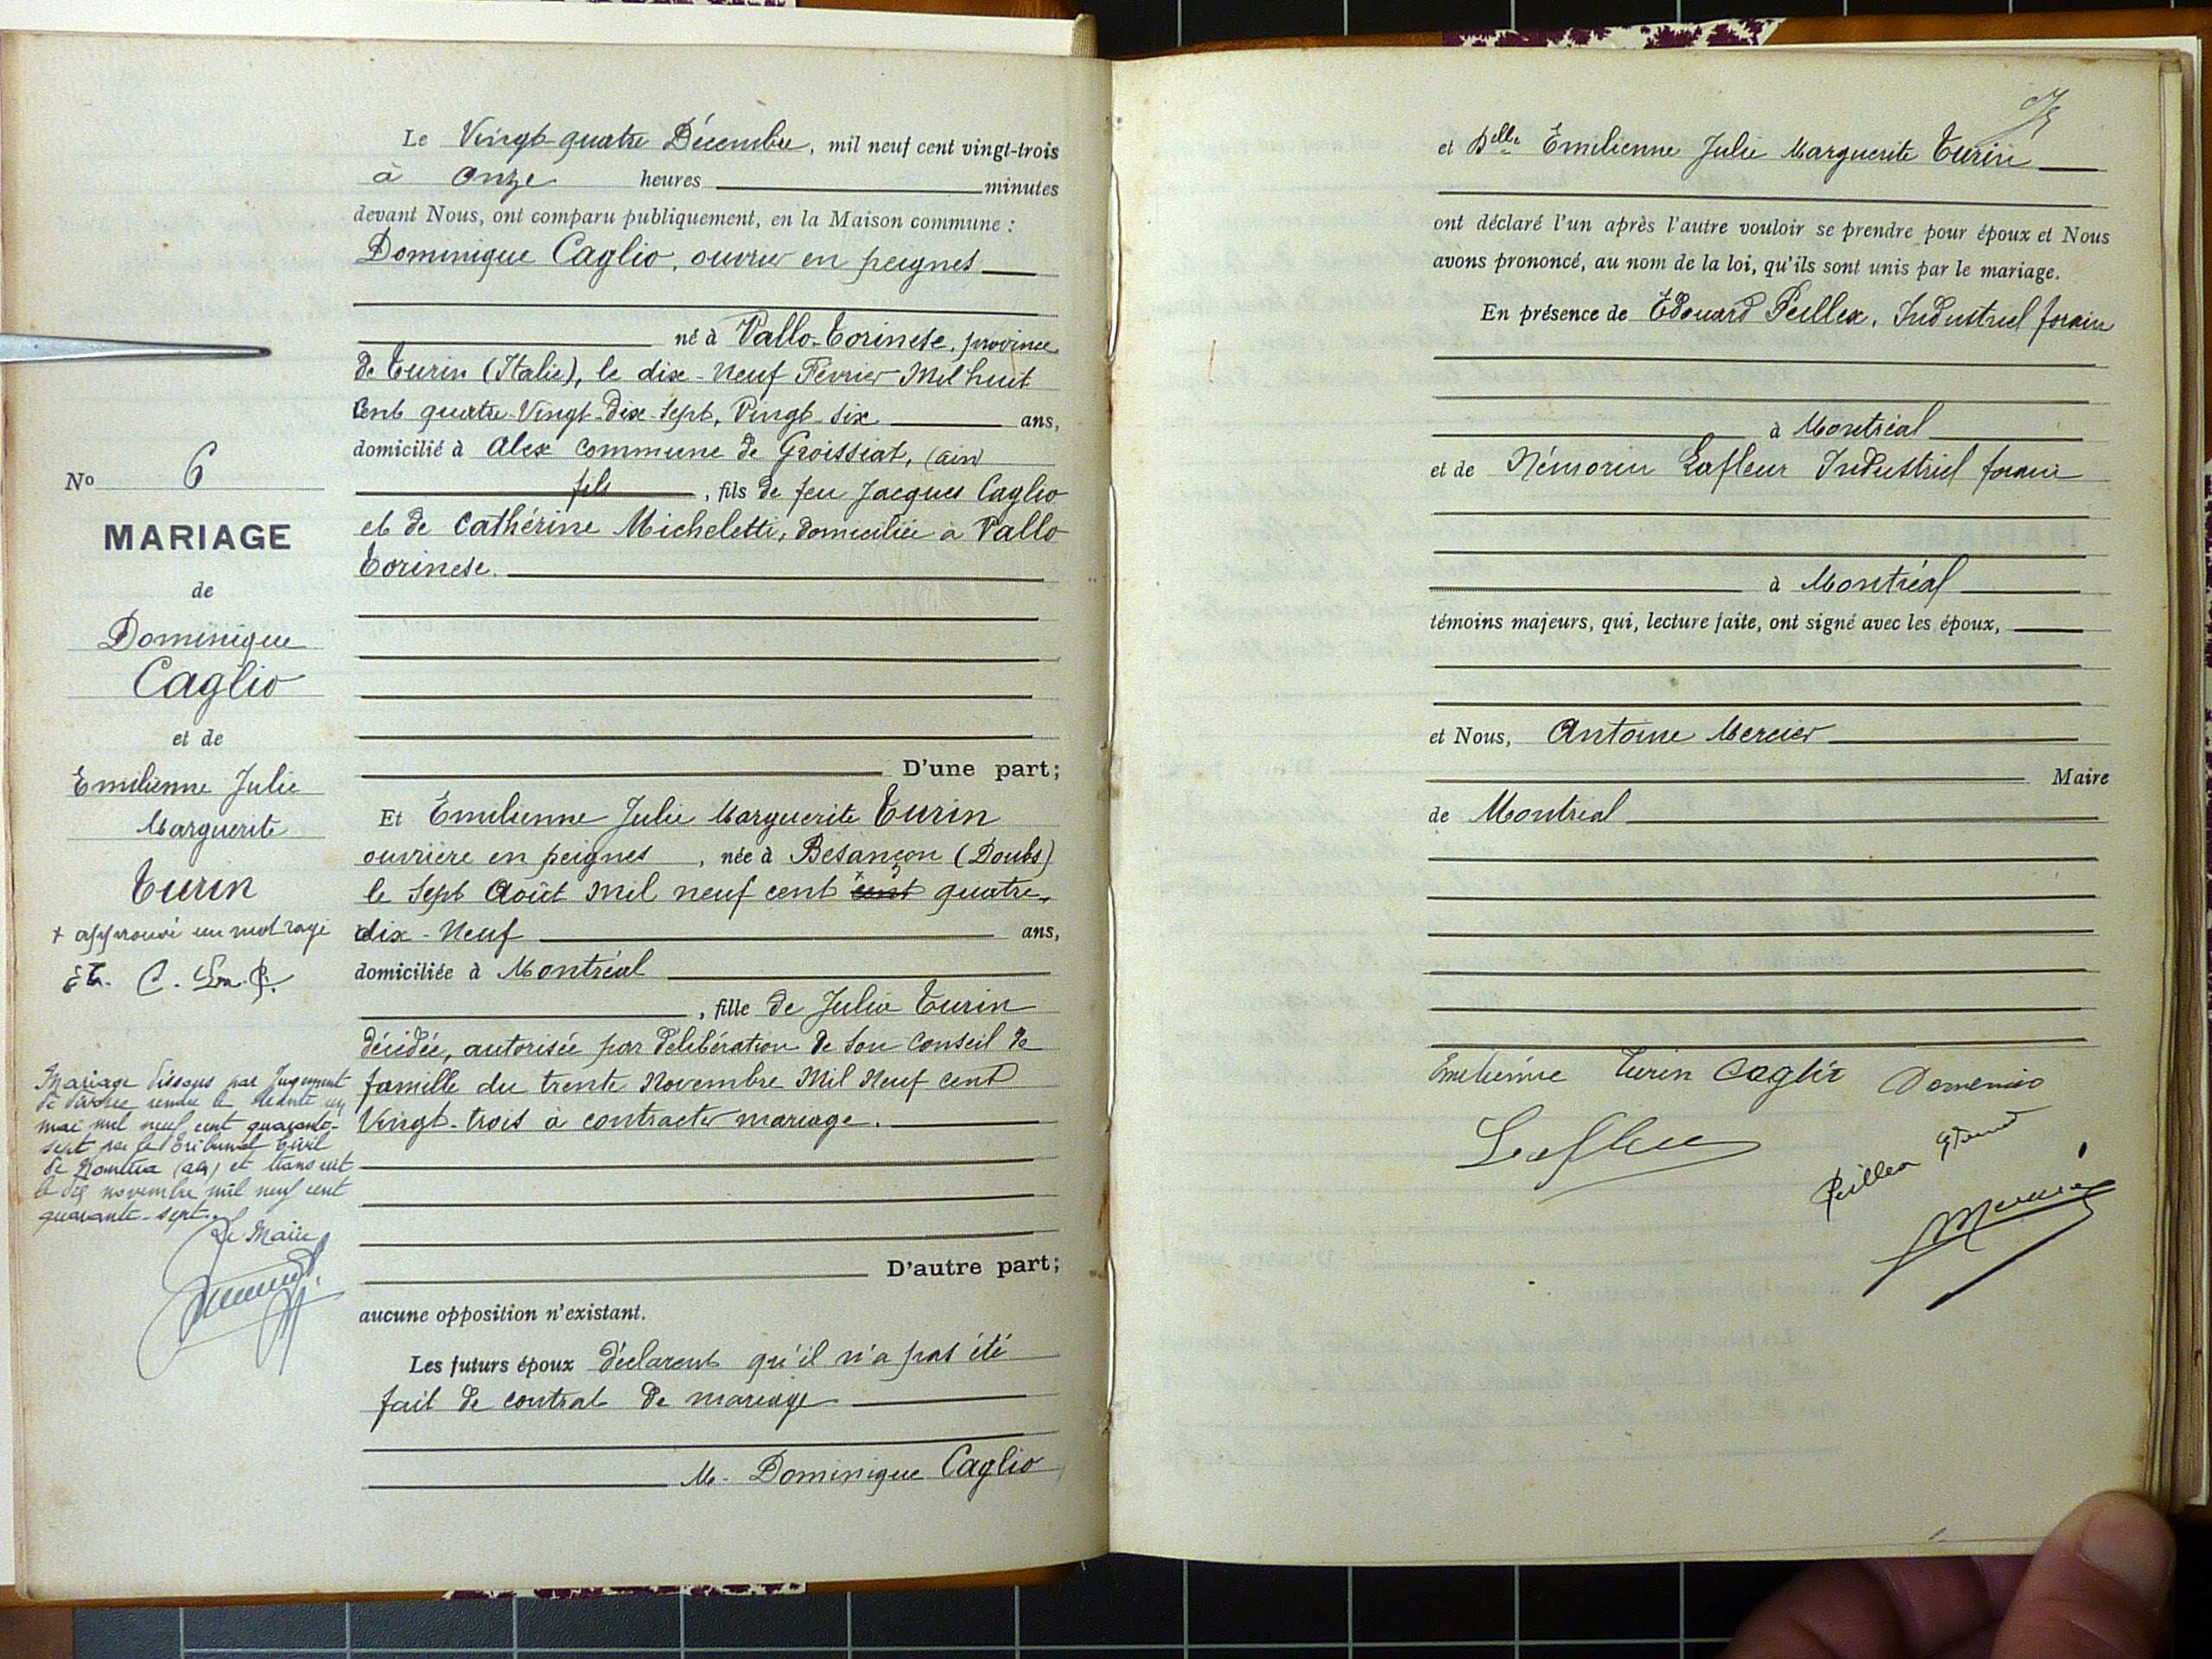 No 6
MARIAGE
de
Dominique
Caglio
et de
Emilienne Julie
Marguerite
Turin
+ approuvé un mot rayé
E.T. C. Lm. P.
Mariage dissous par Jugement
de divorce rendu le trente un
mai mil neuf cent quarante-
sept par le Tribunal Civil
de Nantua (Ain) et transcrit
le dix novembre mil neuf cent
quarante-sept.
Le Maire
Le Vingt-quatre Décembre, mil neuf cent vingt-trois
à onze heures minutes
devant Nous, ont comparu publiquement, en la Maison commune :
Dominique Caglio, ouvrier en peignes
né à Vallo-Torinese, province
de Turin (Italie), le dix-neuf Février Mil huit
Cent quatre-Vingt-Dix-Sept, Vingt-six ans,
domicilié à Alex commune de Groissiat, (ain)
fils, fils de feu Jacques Caglio
et de Cathérine Micheletti, domiciliée à Vallo
Torinese.
D'une part;
Et Emilienne Julie Marguerite Turin
ouvrière en peignes, née à Besançon (Doubs)
le Sept Août Mil neuf cent cent quatre,
dix-Neuf ans,
domiciliée à Montréal
, fille de Julie Turin
décédée, autorisée par délibération de son Conseil de
famille du trente Novembre Mil Neuf cent
Vingt-trois à contracter mariage.
D'autre part;
aucune opposition n'existant.
Les futurs époux déclarent qu'il n'a pas été
fait de contrat de mariage
M. Dominique Caglio
et Delle Emilienne Julie Marguerite Turin
ont déclaré l'un après l'autre vouloir se prendre pour époux et Nous
avons prononcé, au nom de la loi, qu'ils sont unis par le mariage.
En présence de Edouard Peillex, Industriel forain
à Montréal
et de Némorin Lafleur Industriel forain
à Montréal
témoins majeurs, qui, lecture faite, ont signé avec les époux,
et Nous, Antoine Mercier
Maire
de Montréal
Emilienne Turin Caglio Domenico
Lafleur
Peillex Edouard
Mercier